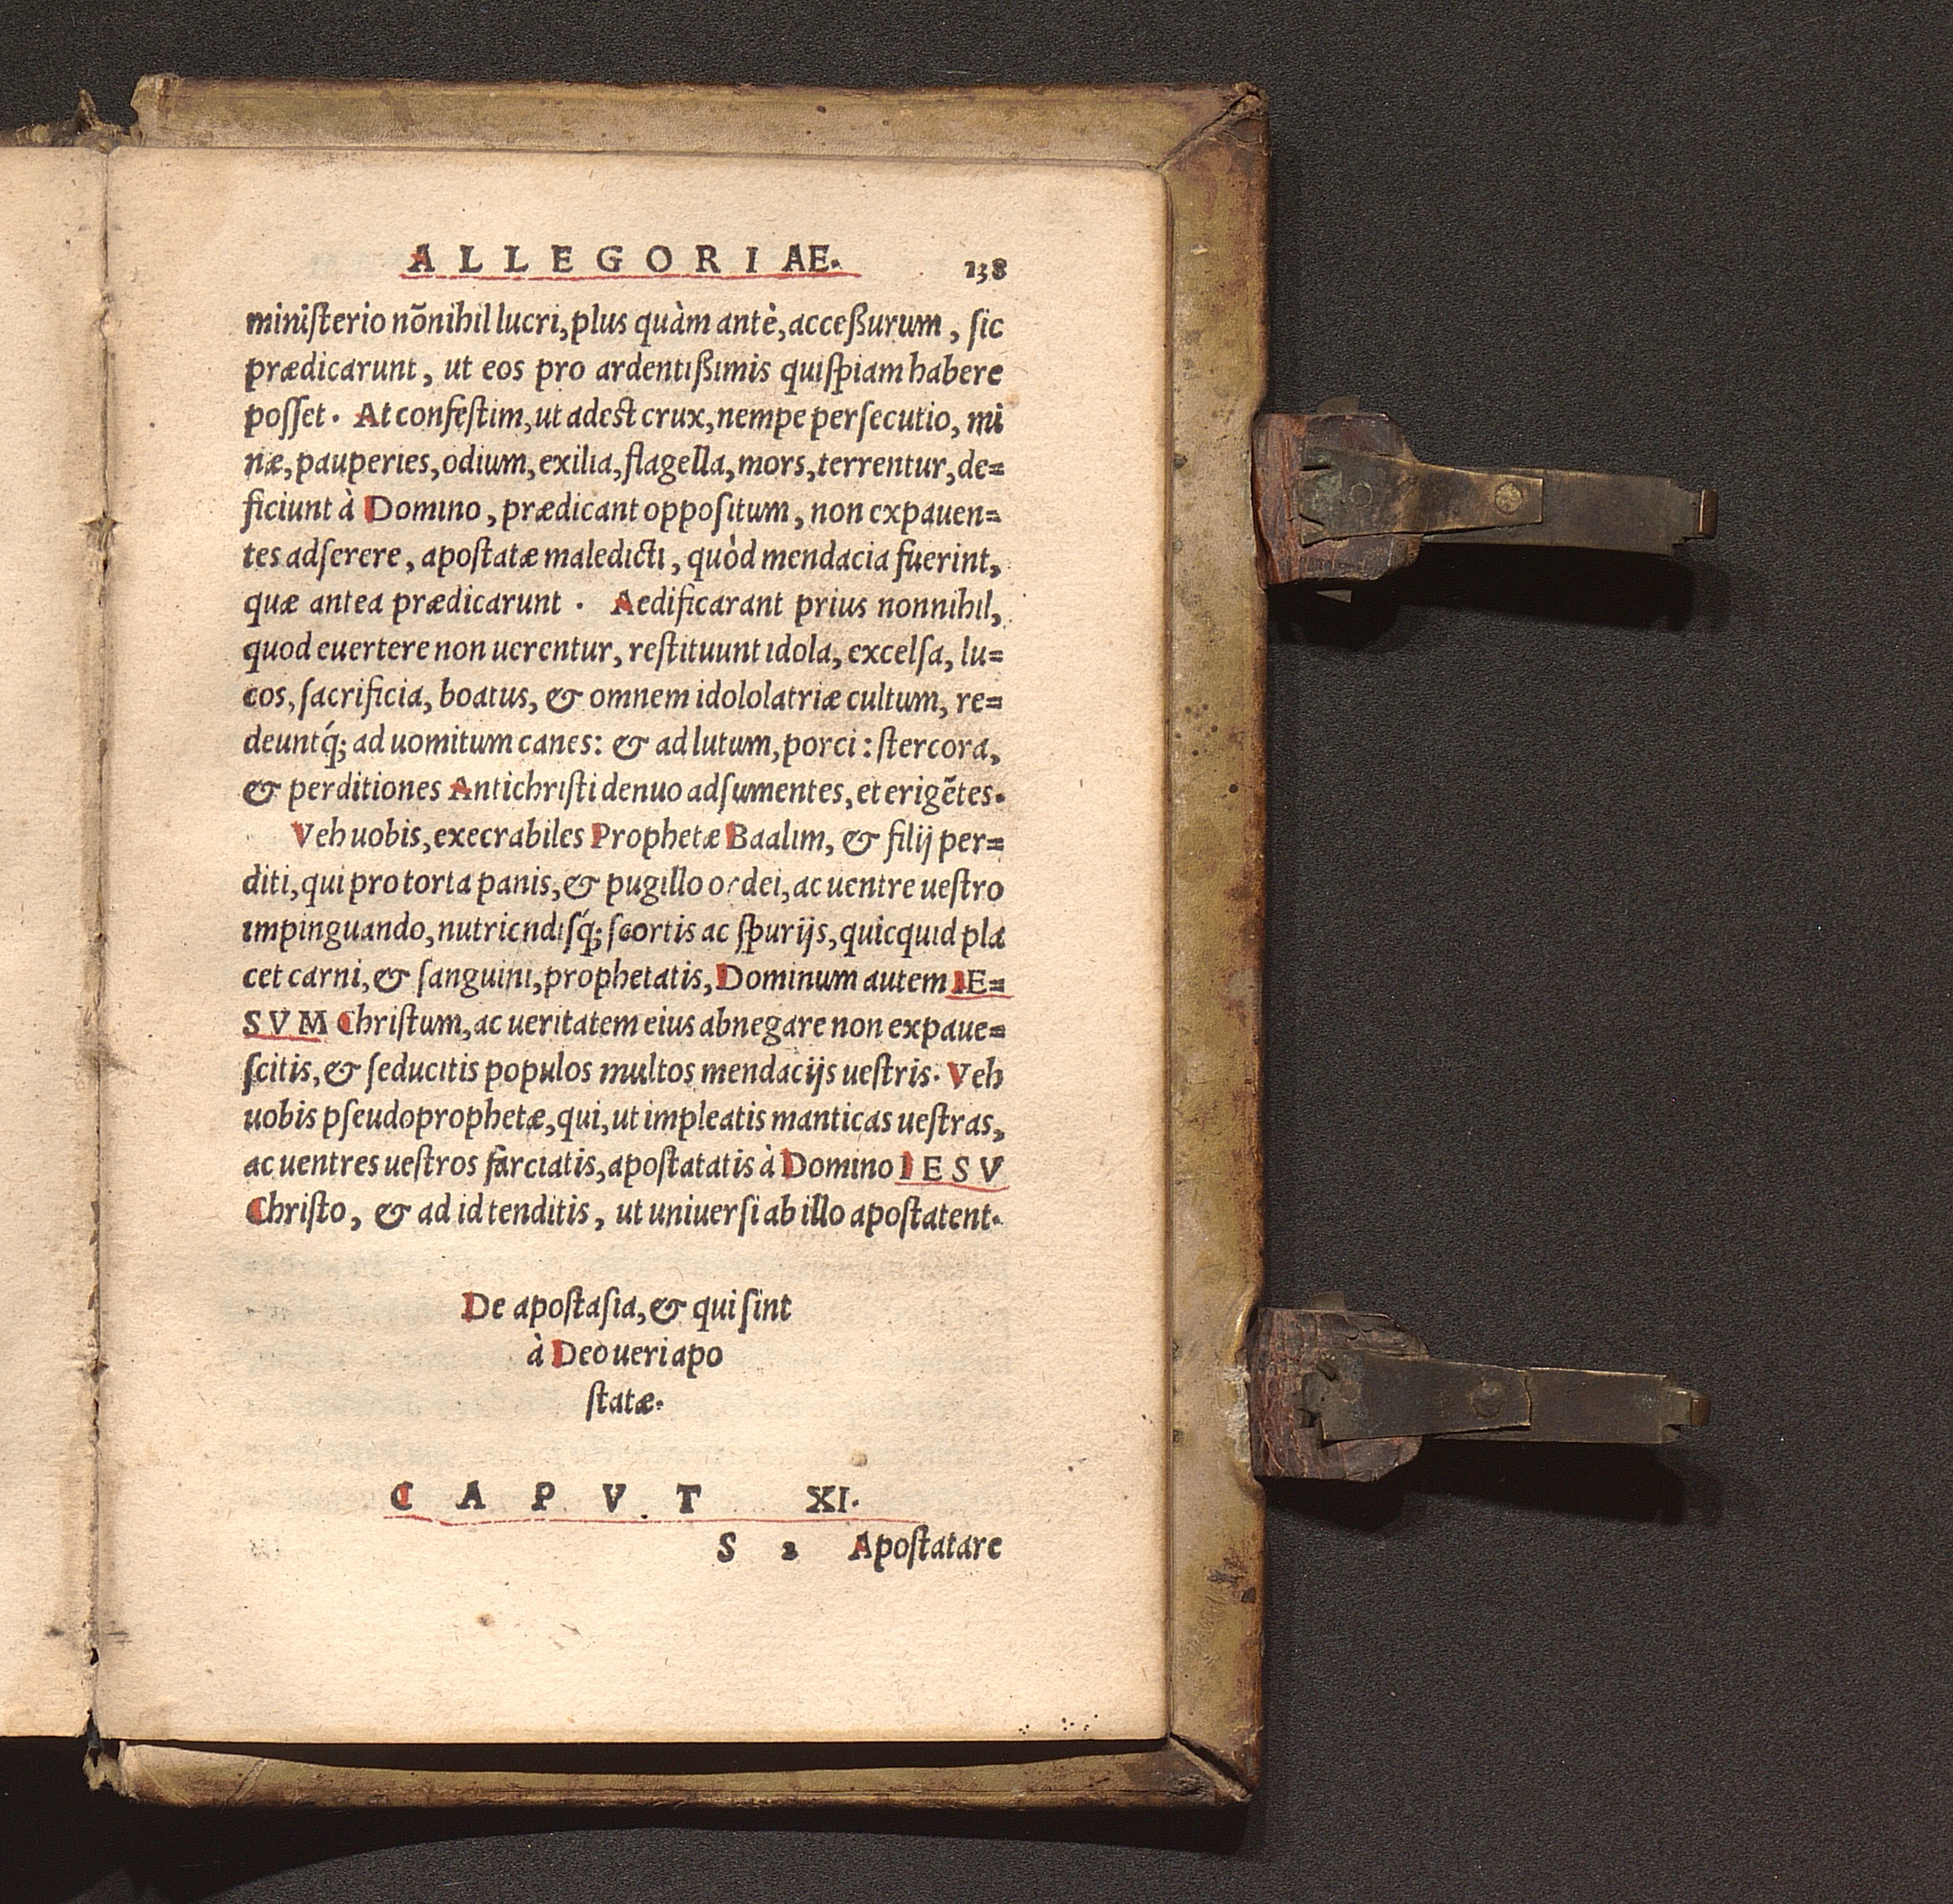 ALLEGORIAE. 138
miniſterio nõnihil lucri, plus quàm antè, acceßurum, ſic
prædicarunt, ut eos pro ardentißimis quiſpiam habere
poſſet. At confeſtim, ut adeſt crux, nempe perſecutio, mi
næ, pauperies, odium, exilia, flagella, mors, terrentur, de=
ficiunt à Domino, prædicant oppoſitum, non expauen=
tes adſerere, apoſtatæ maledicti, quòd mendacia fuerint,
quæ antea prædicarunt. Aedificarant prius nonnihil,
quod euertere non uerentur, reſtituunt idola, excelſa, lu=
cos, ſacrificia, boatus, & omnem idololatriæ cultum, re=
deuntq́; ad uomitum canes: & ad lutum, porci: ſtercora,
& perditiones Antichriſti denuo adſumentes, et erigẽtes.
Veh uobis, execrabiles Prophetæ Baalim, & filij per=
diti, qui pro torta panis, & pugillo ordei, ac uentre ueſtro
impinguando, nutriendiſq́; ſcortis ac ſpurijs, quicquid pla
cet carni, & ſanguini, prophetatis, Dominum autem IE=
SVM Chriſtum, ac ueritatem eius abnegare non expaue=
ſcitis, & ſeducitis populos multos mendacijs ueſtris. Veh
uobis pſeudoprophetæ, qui, ut impleatis manticas ueſtras,
ac uentres ueſtros farciatis, apoſtatatis à Domino IESV
Chriſto, & ad id tenditis, ut uniuerſi ab illo apoſtatent.
De apoſtaſia, & qui ſint
à Deo ueri apo
ſtatæ.
CAPVT XI.
S 2 Apoſtatare